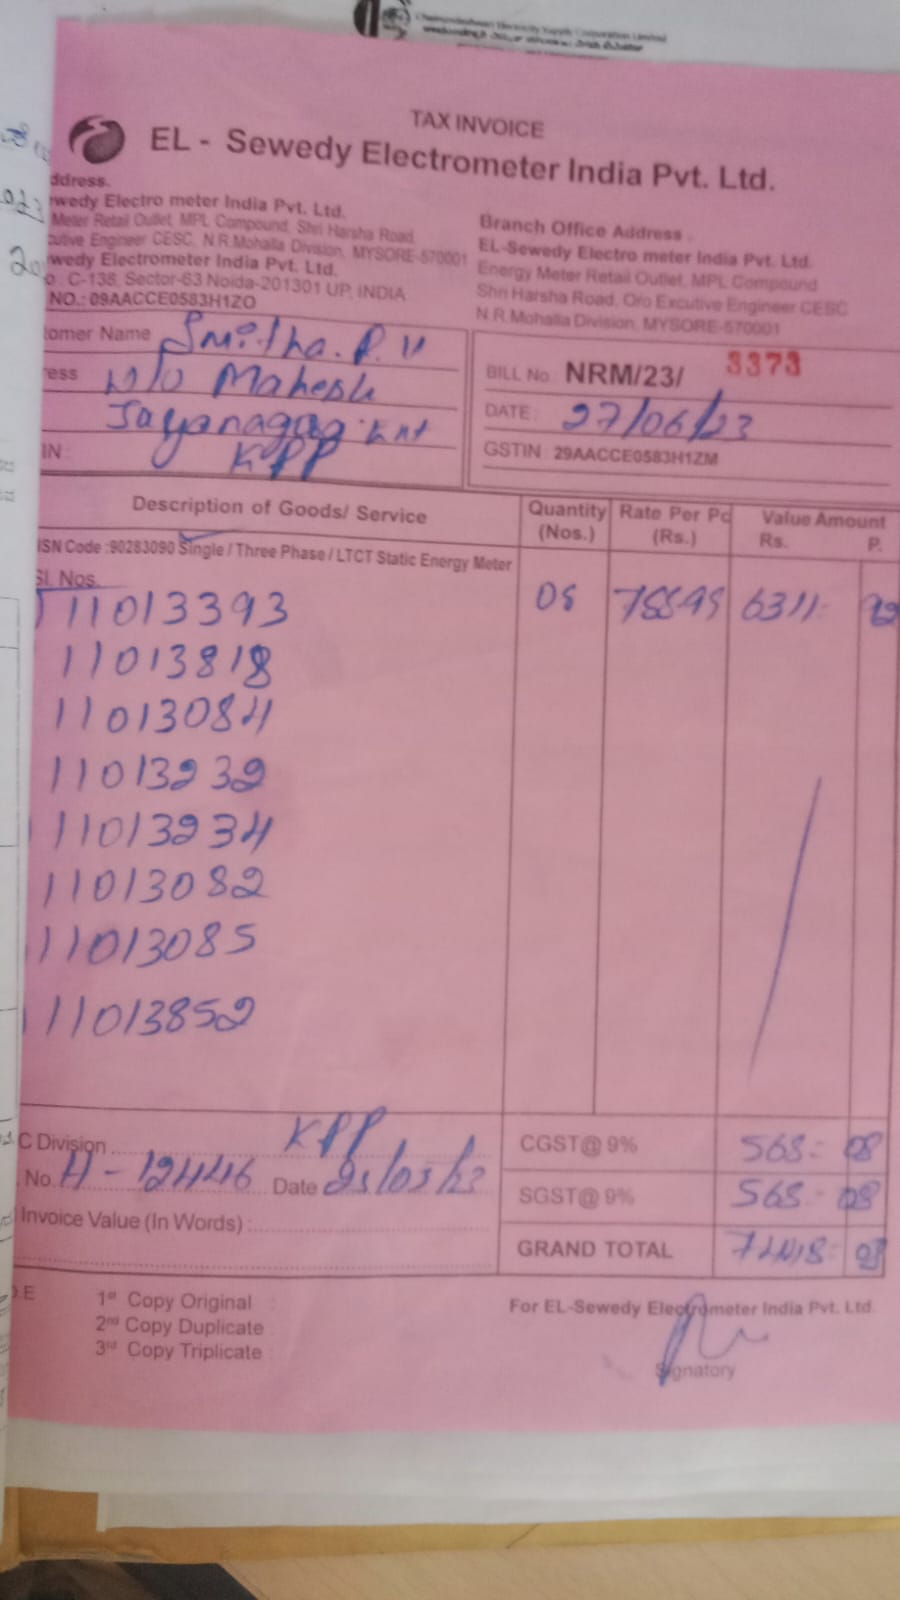 TAX INVOICE
EL - Sewedy Electrometer India Pvt. Ltd.
ddress.
wedy Electro meter India Pvt. Ltd.
Meter Retail Outlet, MPL Compound, Shri Harsha Road,
cutive Engineer CESC, N.R.Mohalla Division, MYSORE-570001
wedy Electrometer India Pvt. Ltd.
o : C-138, Sector-63 Noida-201301 UP, INDIA
NO.: 09AACCE0583H1ZO
Branch Office Address .
EL-Sewedy Electro meter India Pvt. Ltd.
Energy Meter Retail Outlet, MPL Compound
Shri Harsha Road, O/o Excutive Engineer CESC
N.R.Mohalla Division, MYSORE-570001
tomer Name Smitha. R. V
ress W/o Mahesh
Jayanagar
IN: KPP
BILL No. NRM/23/ 3373
DATE: 27/06/23
GSTIN : 29AACCE0583H1ZM
Description of Goods/ Service Quantity (Nos.) Rate Per Pc (Rs.) Value Amount Rs. P.
ISN Code :90283090 Single / Three Phase / LTCT Static Energy Meter
Sl. Nos.
11013393 08 6311-
11013818
11013084
11013232
11013234
11013082
11013085
11013852
C Division KPP
No. H-12446 Date
Invoice Value (In Words) :
CGST@ 9% 568- 08
SGST@ 9% 568- 08
GRAND TOTAL
1st Copy Original :
2nd Copy Duplicate :
3rd Copy Triplicate :
For EL-Sewedy Electrometer India Pvt. Ltd.
Signatory